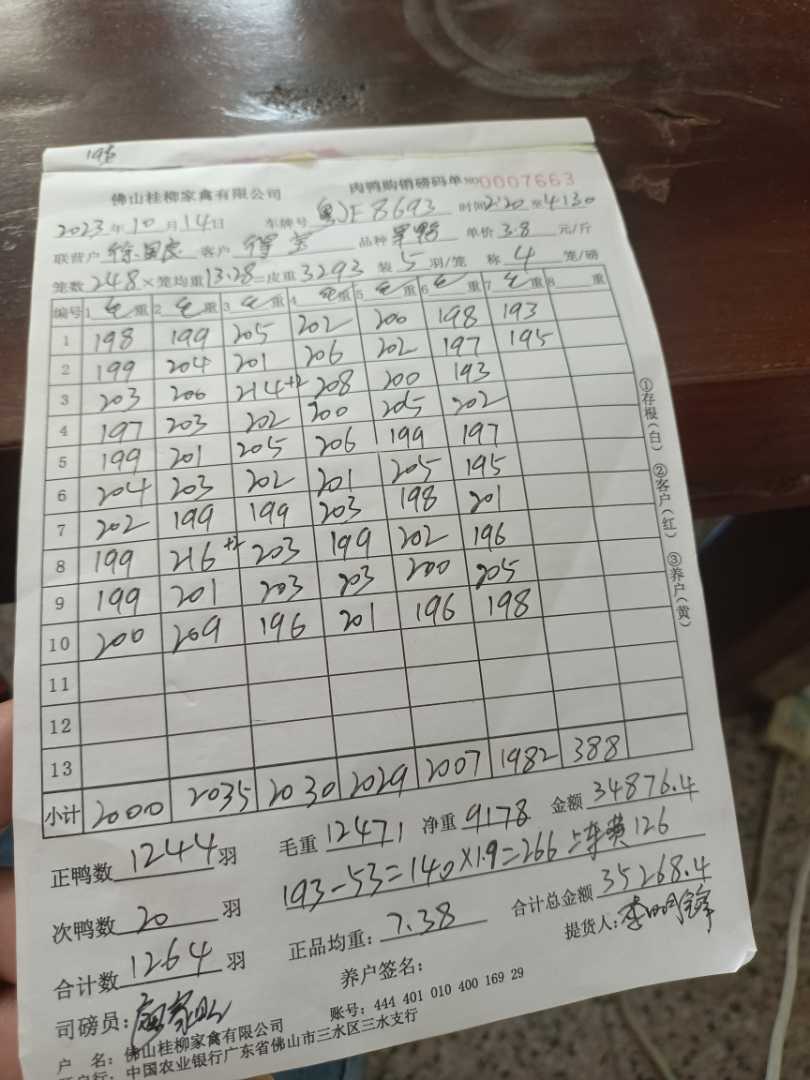 195
佛山桂柳家禽有限公司 肉鸭购销磅码单 NO 0007663
2023年10月14日 车牌号 粤JF8693 时间 2:20 至 4:30
联营户 徐国良 客户 品种 单价 3.8 元/斤
笼数 248 × 笼均重 13.28 = 皮重 3293 装 5 羽/笼 称 4 笼/磅
编号 1 毛重 2 毛重 3 毛重 4 毛重 5 毛重 6 毛重 7 毛重 8 重
1 198 199 205 202 200 198 193
2 199 204 201 206 202 197 195
3 203 206 214+2 208 200 193
4 197 203 202 200 205 202
5 199 201 205 206 199 197
6 204 203 202 201 205 195
7 202 199 199 203 198 201
8 199 216+2 203 199 202 196
9 199 201 203 203 200 205
10 200 209 196 201 196 198
11
12
13
小计 2000 2035 2030 2029 2007 1982 388
①存根(白) ②客户(红) ③养户(黄)
正鸭数 1244 羽 毛重 12471 净重 9178 金额 34876.4
193-53=140×1.9=266 上车费 126
次鸭数 20 羽 正品均重: 7.38 合计总金额 35268.4
合计数 1264 羽 养户签名: 提货人:
司磅员:
户 名: 佛山桂柳家禽有限公司 账号: 444 401 010 400 169 29
开户行: 中国农业银行广东省佛山市三水区三水支行